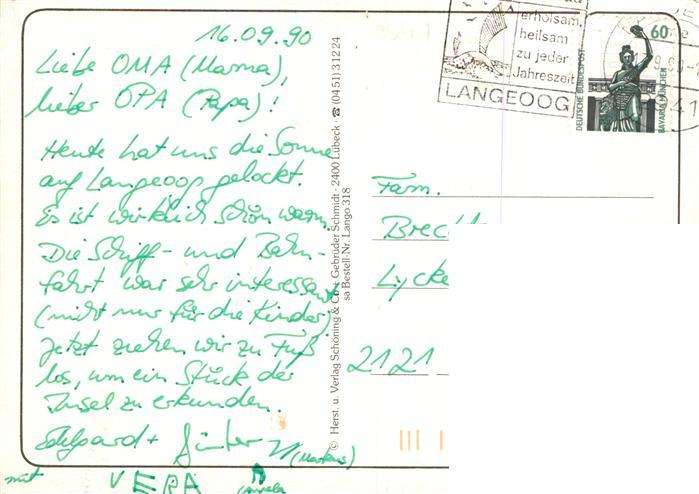 16.09.90
Liebe OMA (Mama),
lieber OPA (Papa)!
Heute hat uns die Sonne
auf Langeoog gelockt.
Es ist wirklich schön warm.
Die Schiff- und Bahn-
fahrt war sehr interessant
(nicht nur für die Kinder)
Jetzt ziehen wir zu Fuß
los, um ein Stück der
Insel zu erkunden.
Günter
(Markus)
mit VERA
© Herst. u. Verlag Schöning & Co + Gebrüder Schmidt · 2400 Lübeck · ☎ (0451) 31224
sa Bestell-Nr. Lango 318
erholsam,
heilsam
zu jeder
Jahreszeit
LANGEOOG
60
DEUTSCHE BUNDESPOST
BAVARIA MÜNCHEN
Fam.
Brecht
Lycke
2121